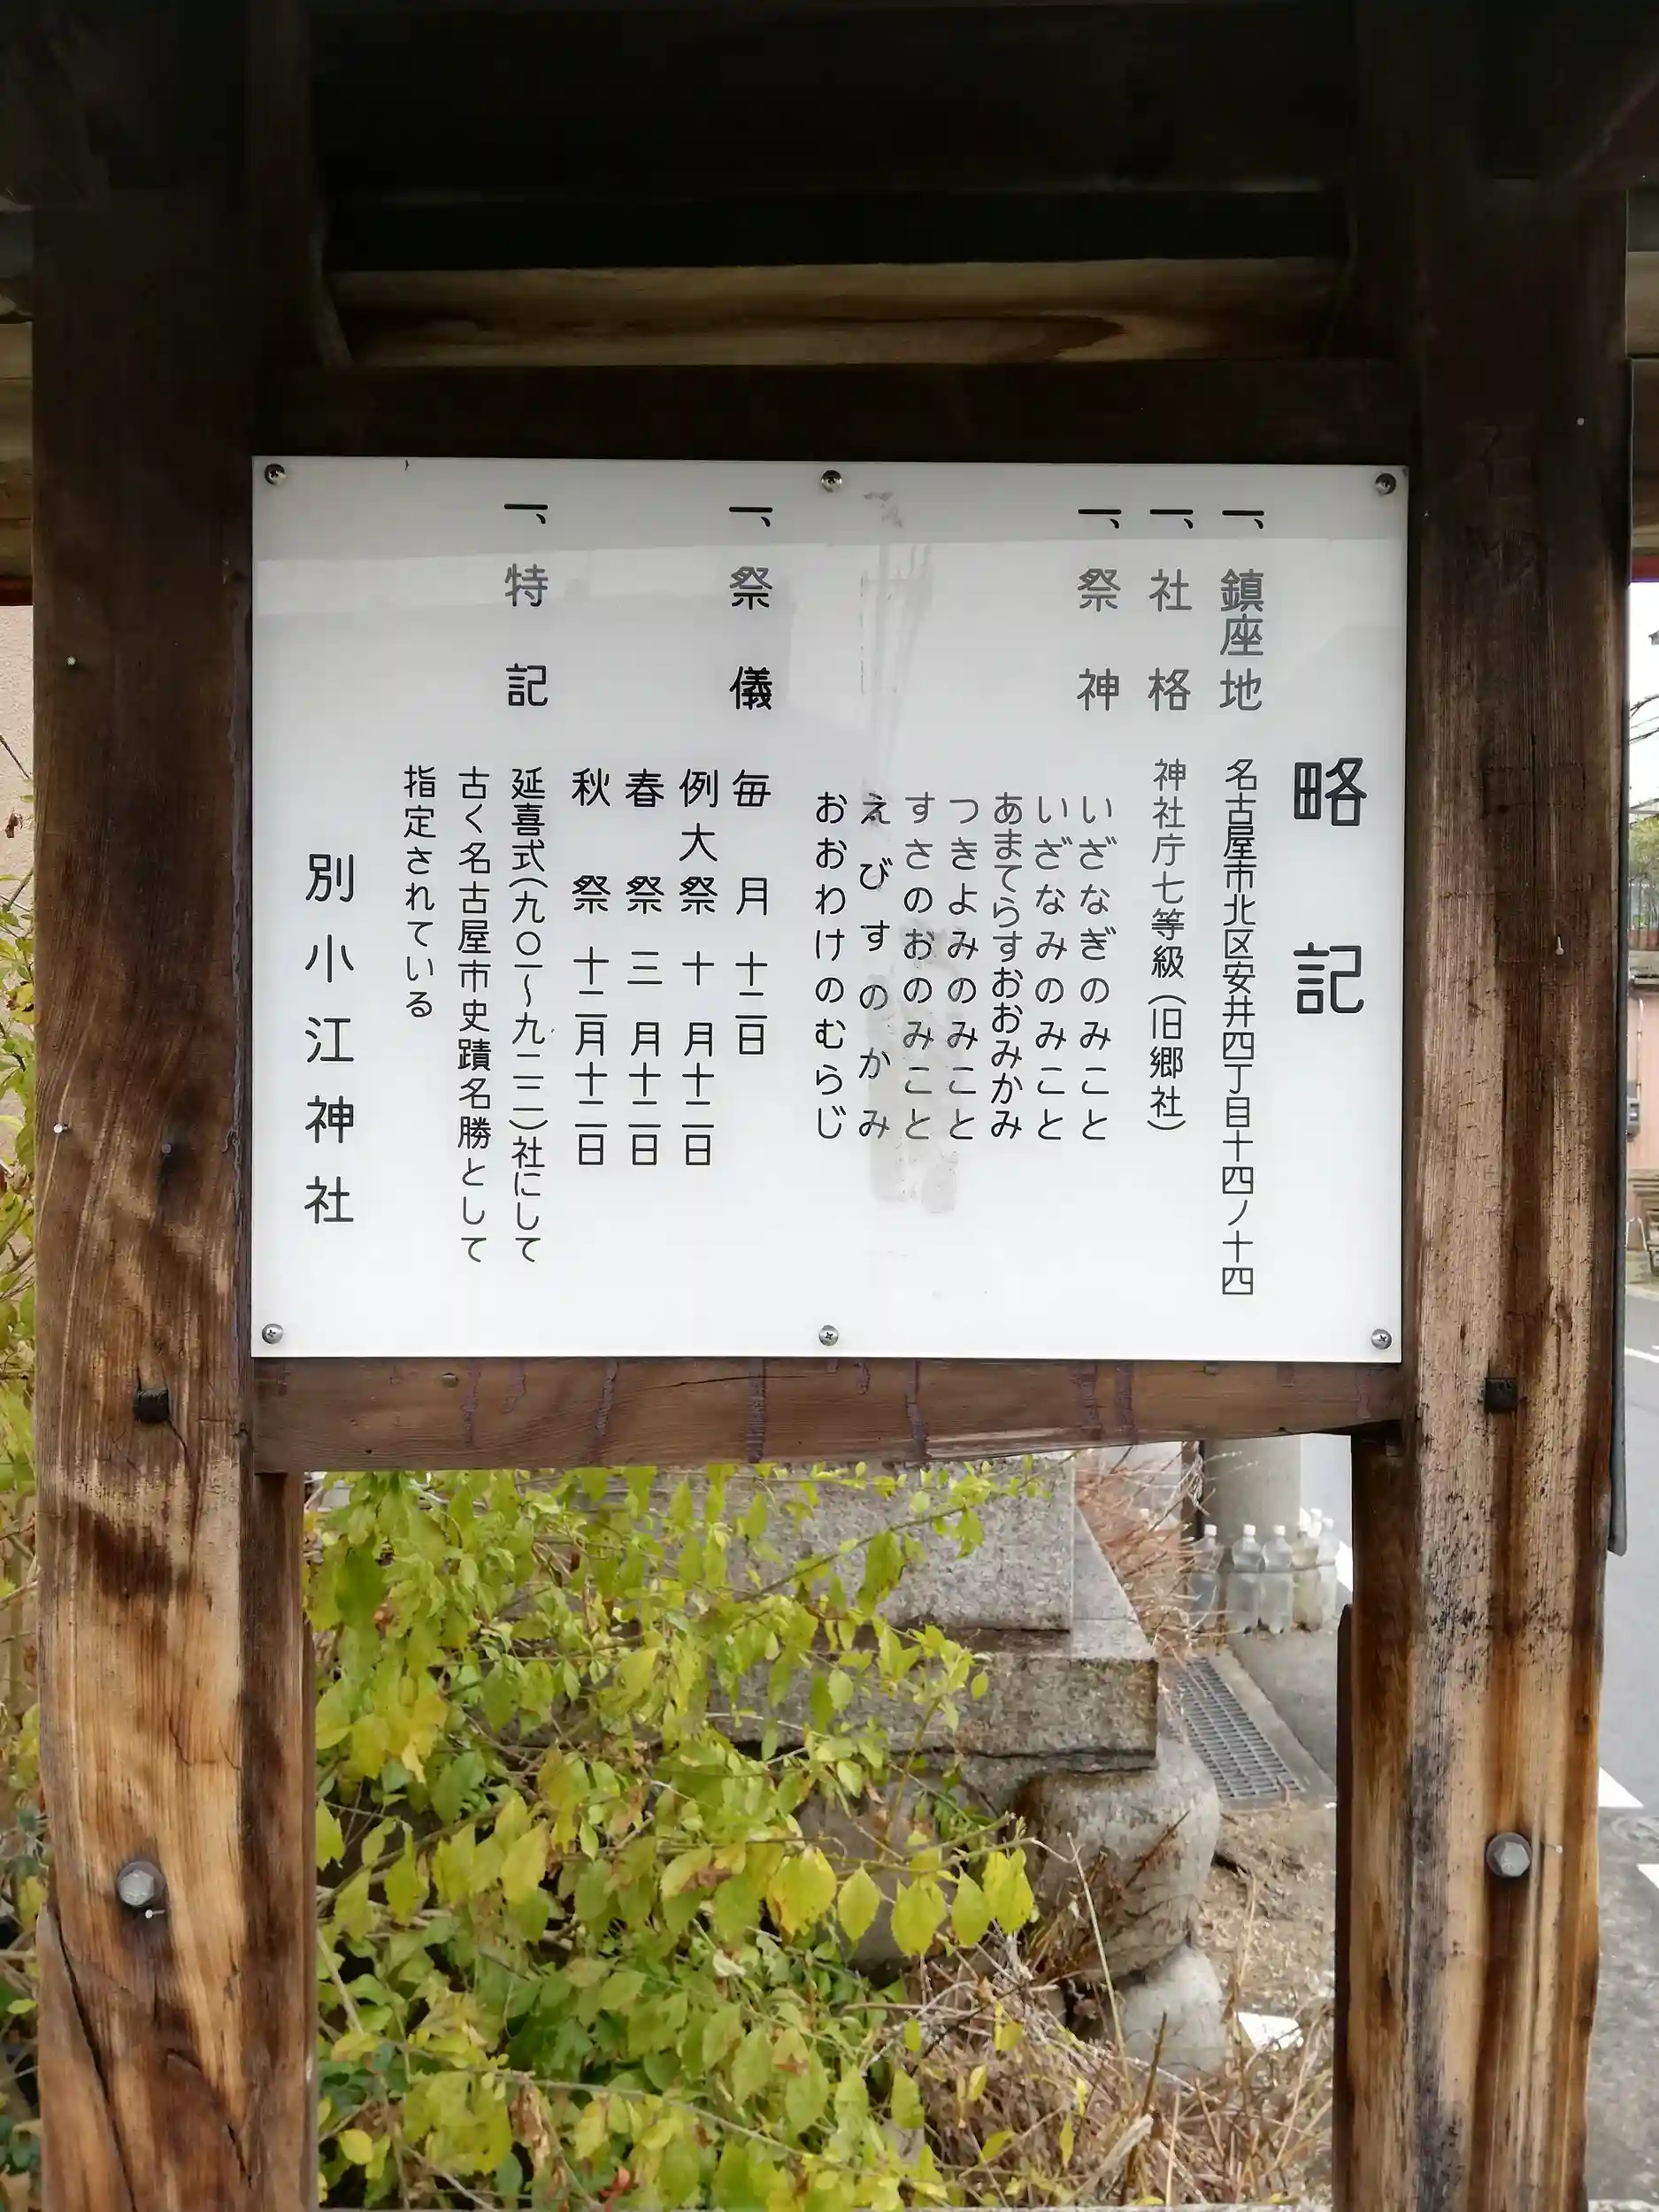 略記
一、鎮座地 名古屋市北区安井四丁目十四ノ十四
一、社格 神社庁七等級（旧郷社）
一、祭神 いざなぎのみこと
いざなみのみこと
あまてらすおおみかみ
つきよみのみこと
すさのおのみこと
えびすのかみ
おおわけのむらじ
一、祭儀 毎月 十二日
例大祭 十月十二日
春祭 三月十二日
秋祭 十二月十二日
一、特記 延喜式（九〇一〜九二二）社にして
古く名古屋市史蹟名勝として
指定されている
別小江神社